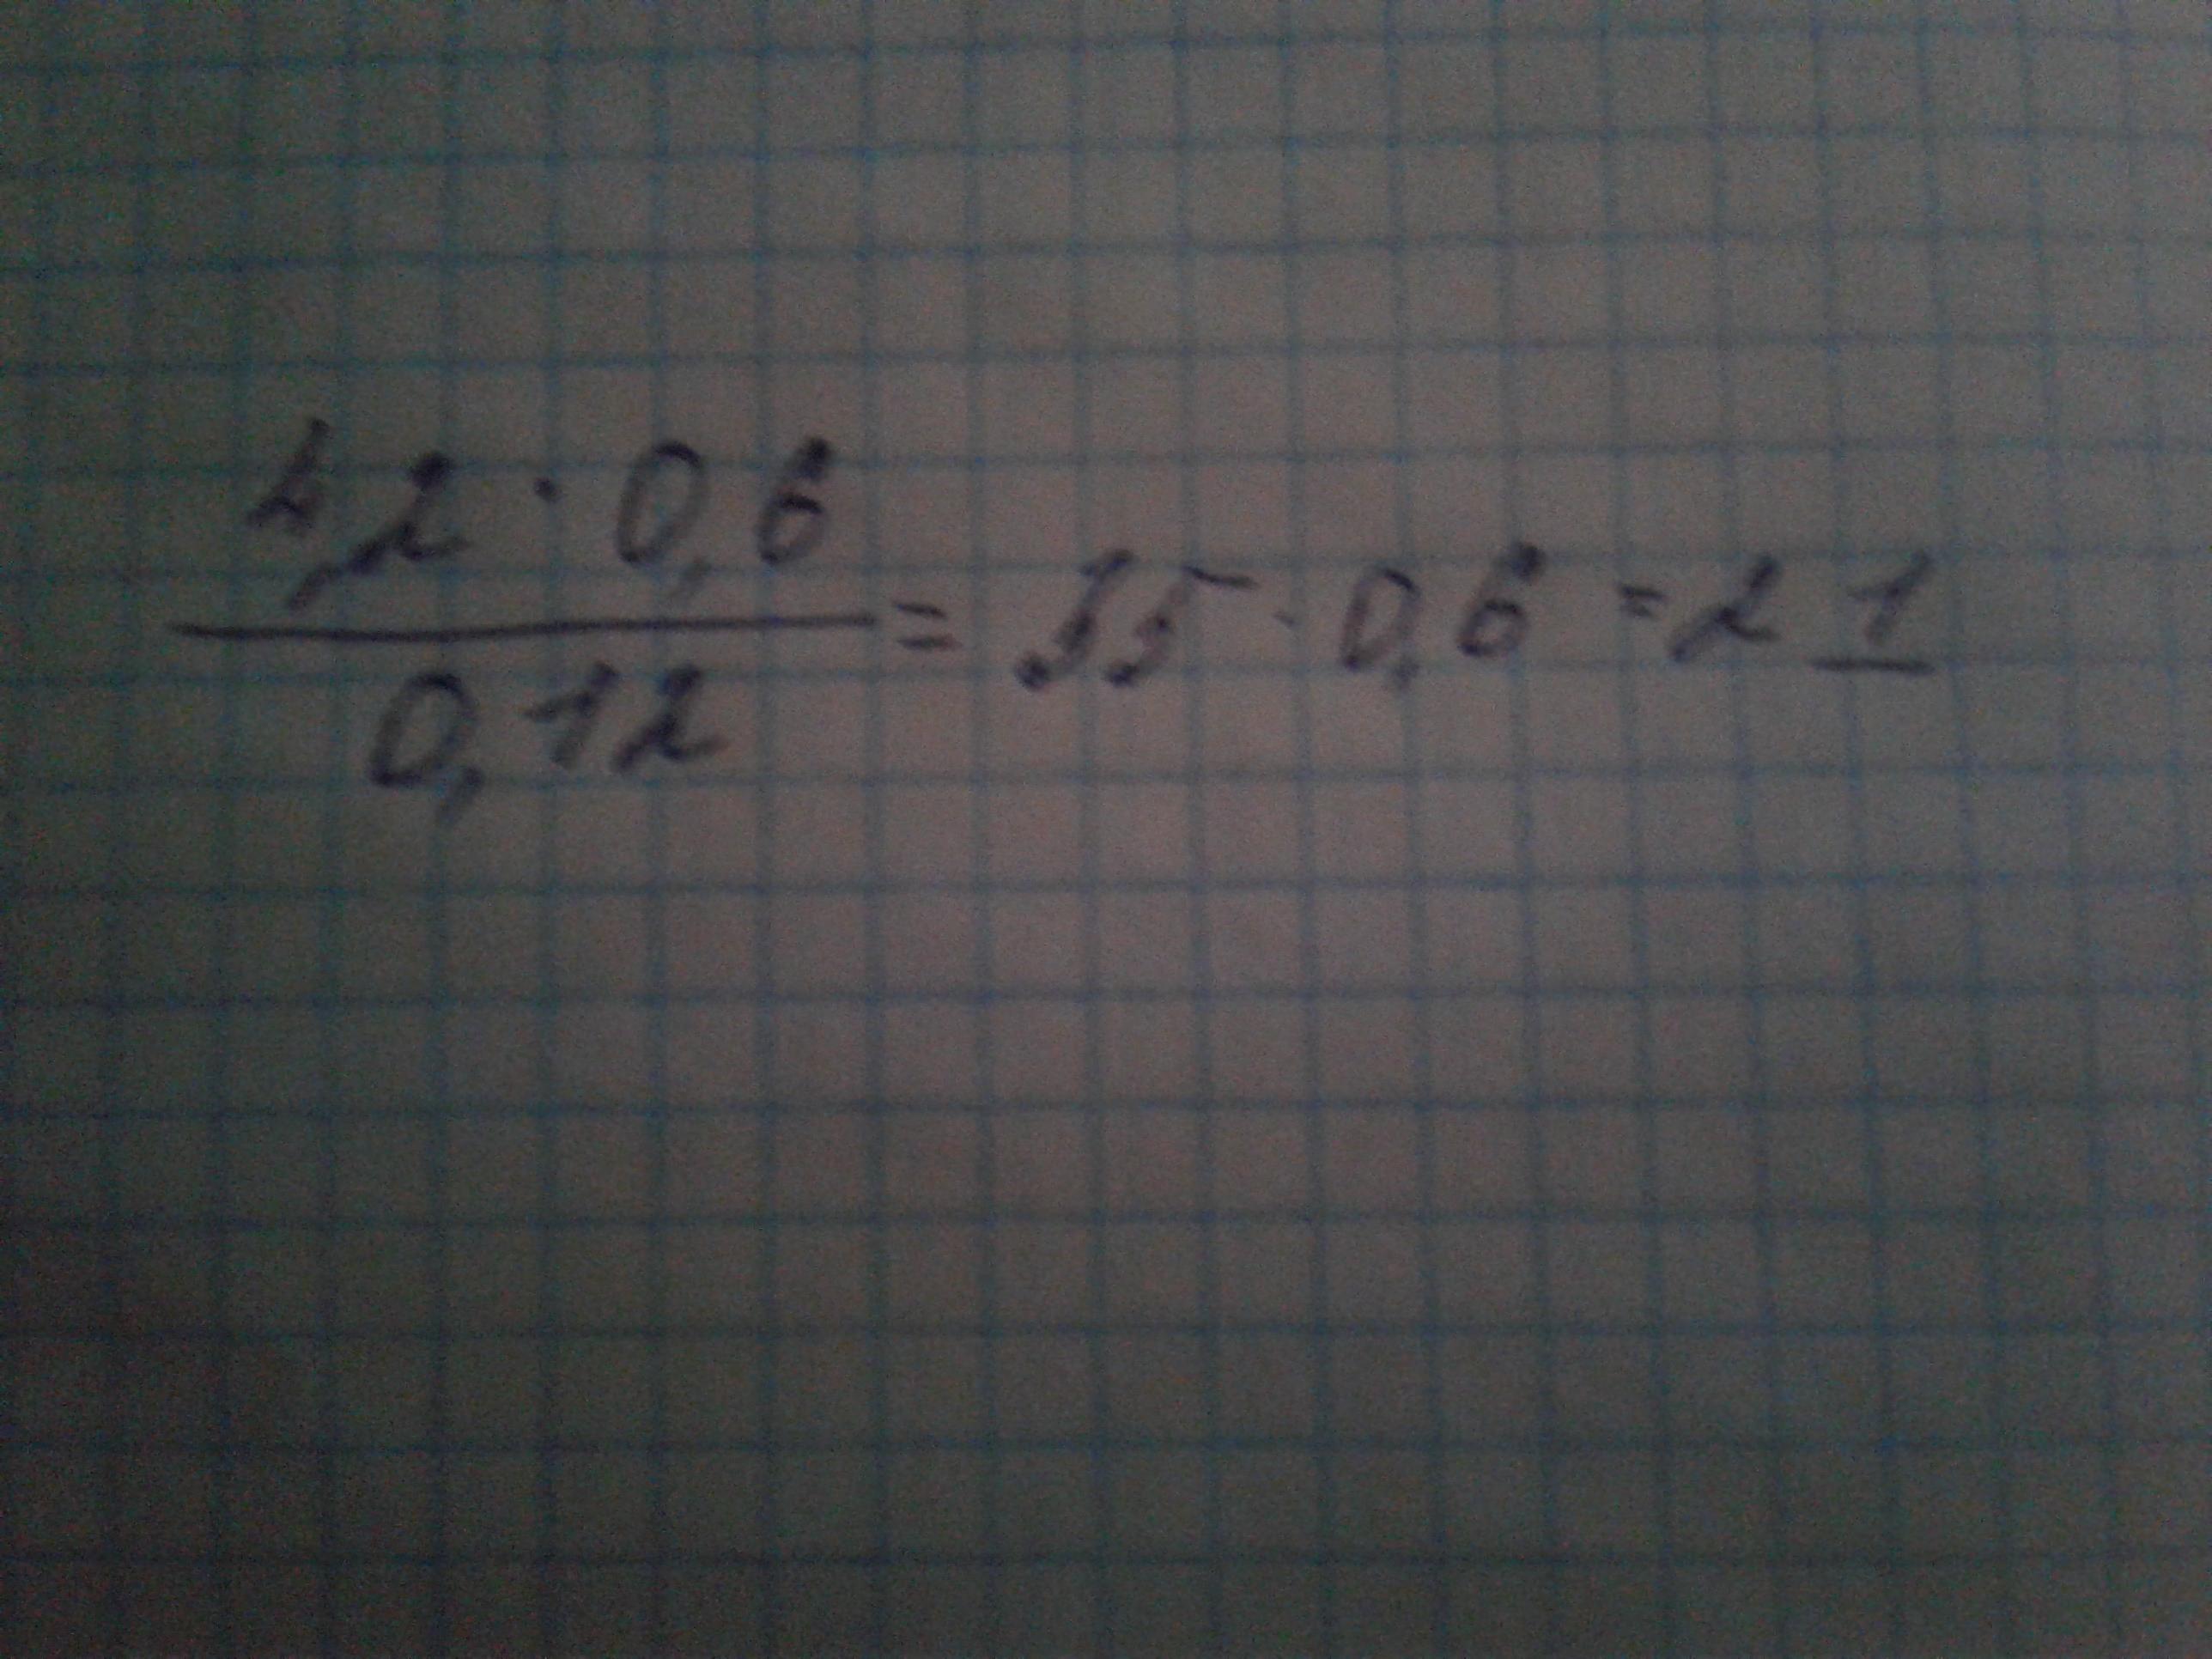 4,2 · 0,6 / 0,12 = 35 · 0,6 = 21